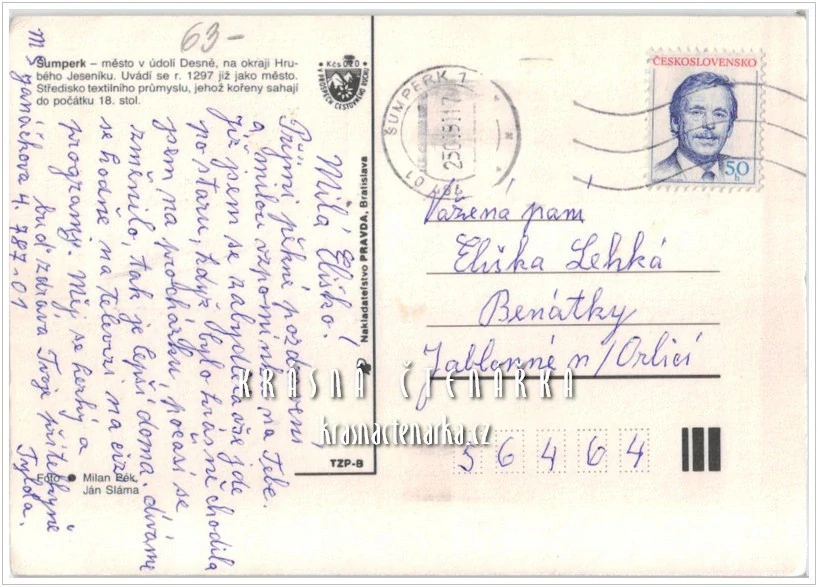 63-
Šumperk – město v údolí Desné, na okraji Hru-
bého Jeseníku. Uvádí se r. 1297 již jako město.
Středisko textilního průmyslu, jehož kořeny sahají
do počátku 18. stol.
Kčs 0,20
V PROSPĚCH CESTOVNÉHO RUCHU
Milá Eliško!
Přijmi pěkné pozdravení
a milou vzpomínku na Tebe.
Již jsem se zabydlela vše jde
po staru, když bylo krásně chodila
jsem na procházku počasí se
změnilo, tak je lepší doma. dívám
se hodně na televizi na ciz.
programy. Měj se hezky a
buď zdráva Tvoje přítelkyně
Tylda.
4. 787-01
Foto
Milan Pék,
Ján Sláma
Nakladateľstvo PRAVDA, Bratislava
TZP-B
ŠUMPERK 1
ČESKOSLOVENSKO
50
h
Vážená paní
Eliška Lehká
Benátky
Jablonné n/Orlicí
56464
KRÁSNÁ ČTENÁŘKA
krasnactenarka.cz